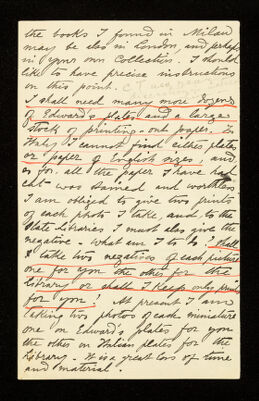 the books I found in Milan
may be also in London, and perhaps
in your own Collection. I should
like to have precise instructions
on this point.
I shall need many more dozens
of Edward's plates, and a large
stock of printing-out paper. In
Italy I cannot find either plates
or paper of English sizes and
as for all the paper I have had
cut was stained and worthless
I am obliged to give two prints
of each photo I take, and to the
State Libraries I must also give the
negative. What am I to do? Shall
I take two negatives of each picture
one for you the other for the
Library or shall I keep only prints
for you? At present I am
taking two photos of each miniature
one on Edward's plates for you
the other on Italian plates for the
Library. It is a great loss of time
and material.